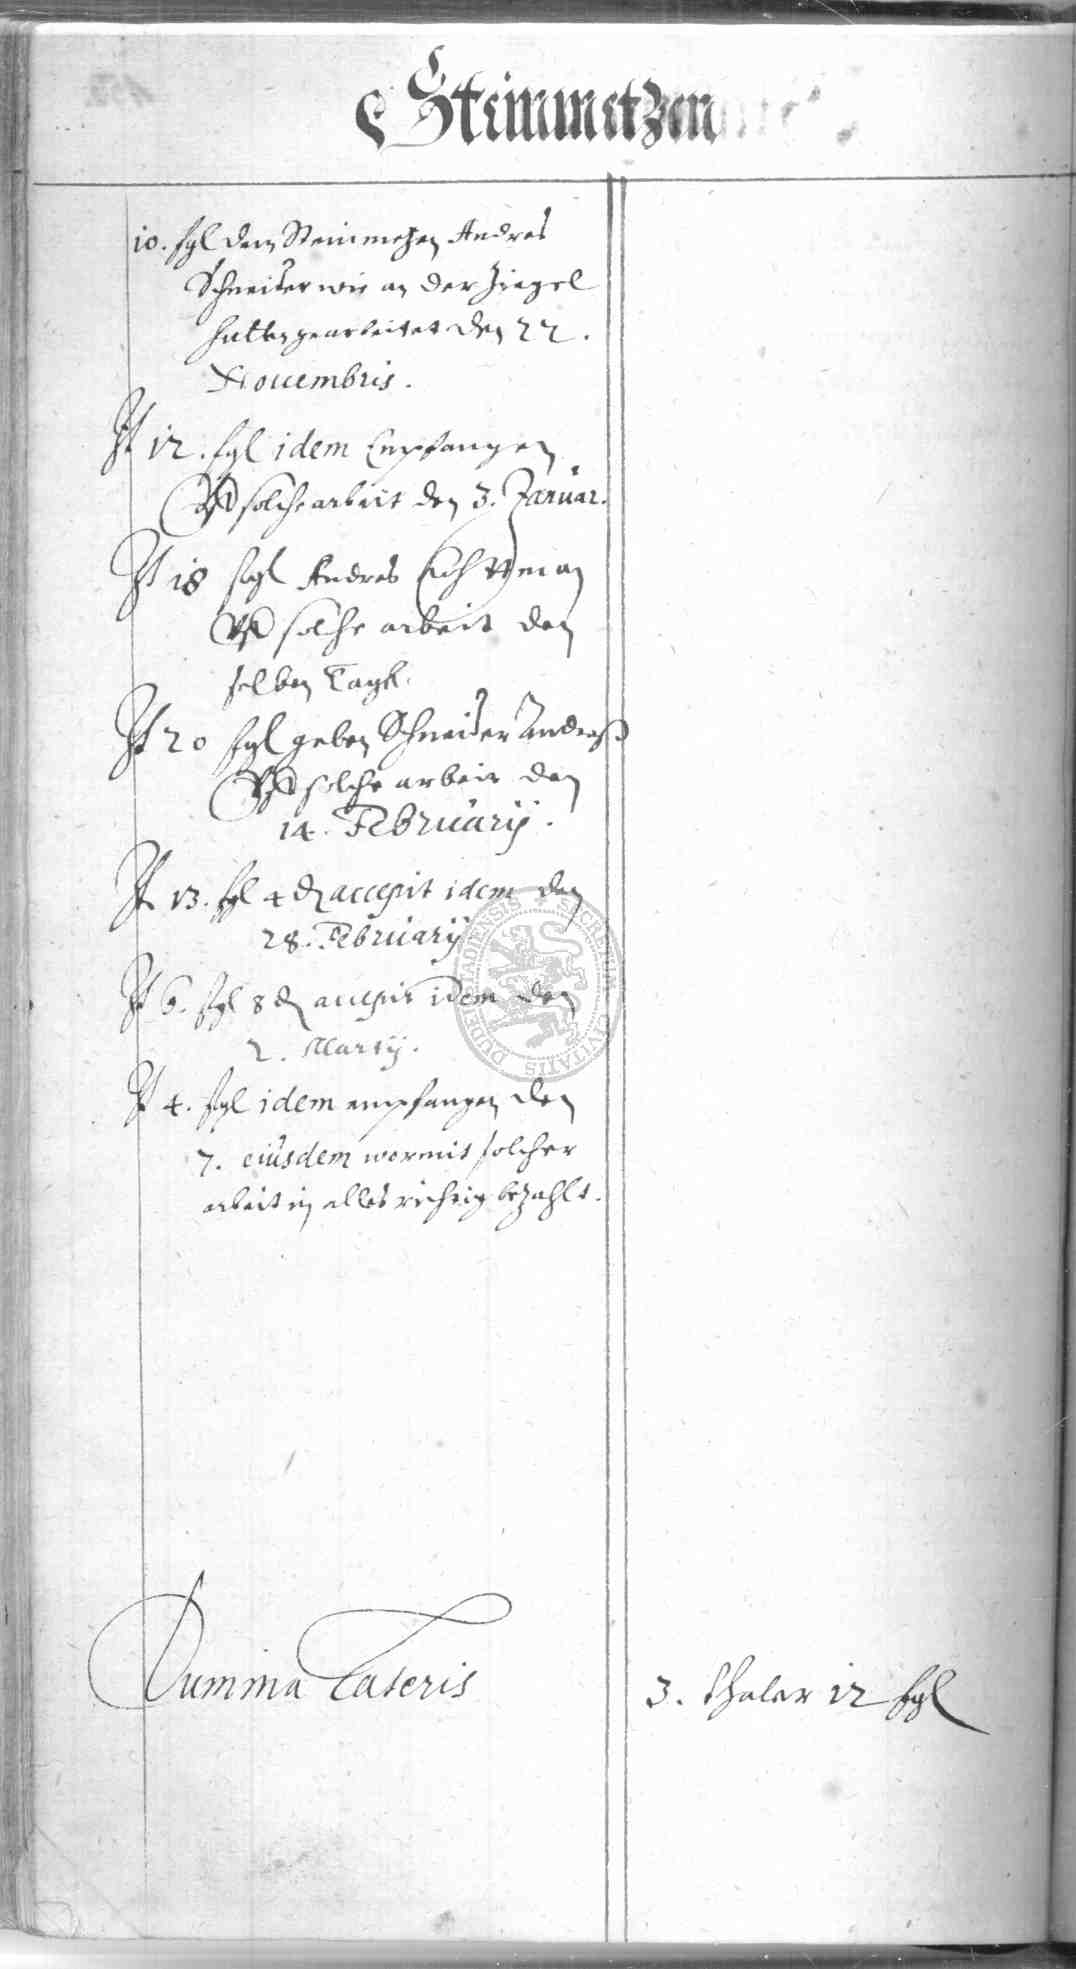 Steinmetzen
10. sgl dem Steinmetzen Andres
Schneider wie an der Ziegel
hutten gearbeitet den 22.
Nouembris.
It 12. sgl idem Empfangen
Vff solche arbeit den 3. Januar.
It 18 sgl Andres
Vff solche arbeit den
selben Tagk.
It 20 sgl geben Schneider Anderß
Vff solche arbeit den
14. February.
It 13. sgl 4 d accepit idem den
28. February
It 6. sgl 8 d accepit idem den
2. Martij.
It 4. sgl idem empfangen den
7. eiusdem wormit solcher
arbeit in alles richtig bezahlt.
Summa Lateris
3. thaler 12 sgl
SECRETUM CIVITATIS DUDERSTADIENSIS